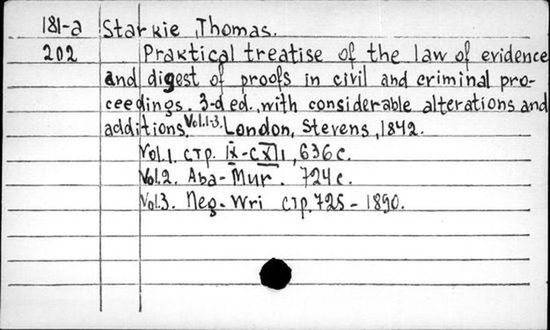 181-a Starkie, Thomas.
202 Praktical treatise of the law of evidence
and digest of proofs in civil and criminal pro-
ceedings. 3-d ed., with considerable alterations and
additions. Vol.1-3. London, Stevens, 1842.
Vol.1. стр. IX-CXII, 636 с.
Vol.2. Aba-Mur. 724 с.
Vol.3. Neg-Wri стр. 725-1890.